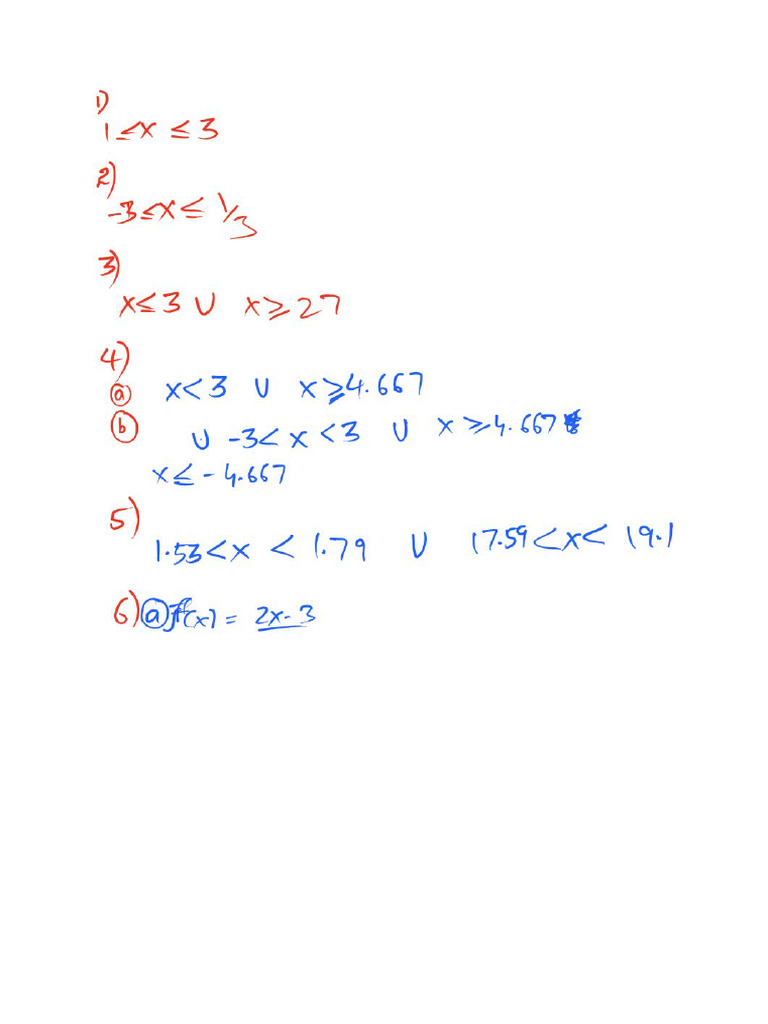 1)
1 ≤ x ≤ 3
2)
-3 ≤ x ≤ 1/3
3)
x ≤ 3 ∪ x ≥ 27
4)
ⓐ x < 3 ∪ x ≥ 4.667
ⓑ ∪ -3 < x < 3 ∪ x ≥ 4.667
x ≤ -4.667
5)
1.53 < x < 1.79 ∪ 17.59 < x < 19.1
6) ⓐ f(x) = 2x-3